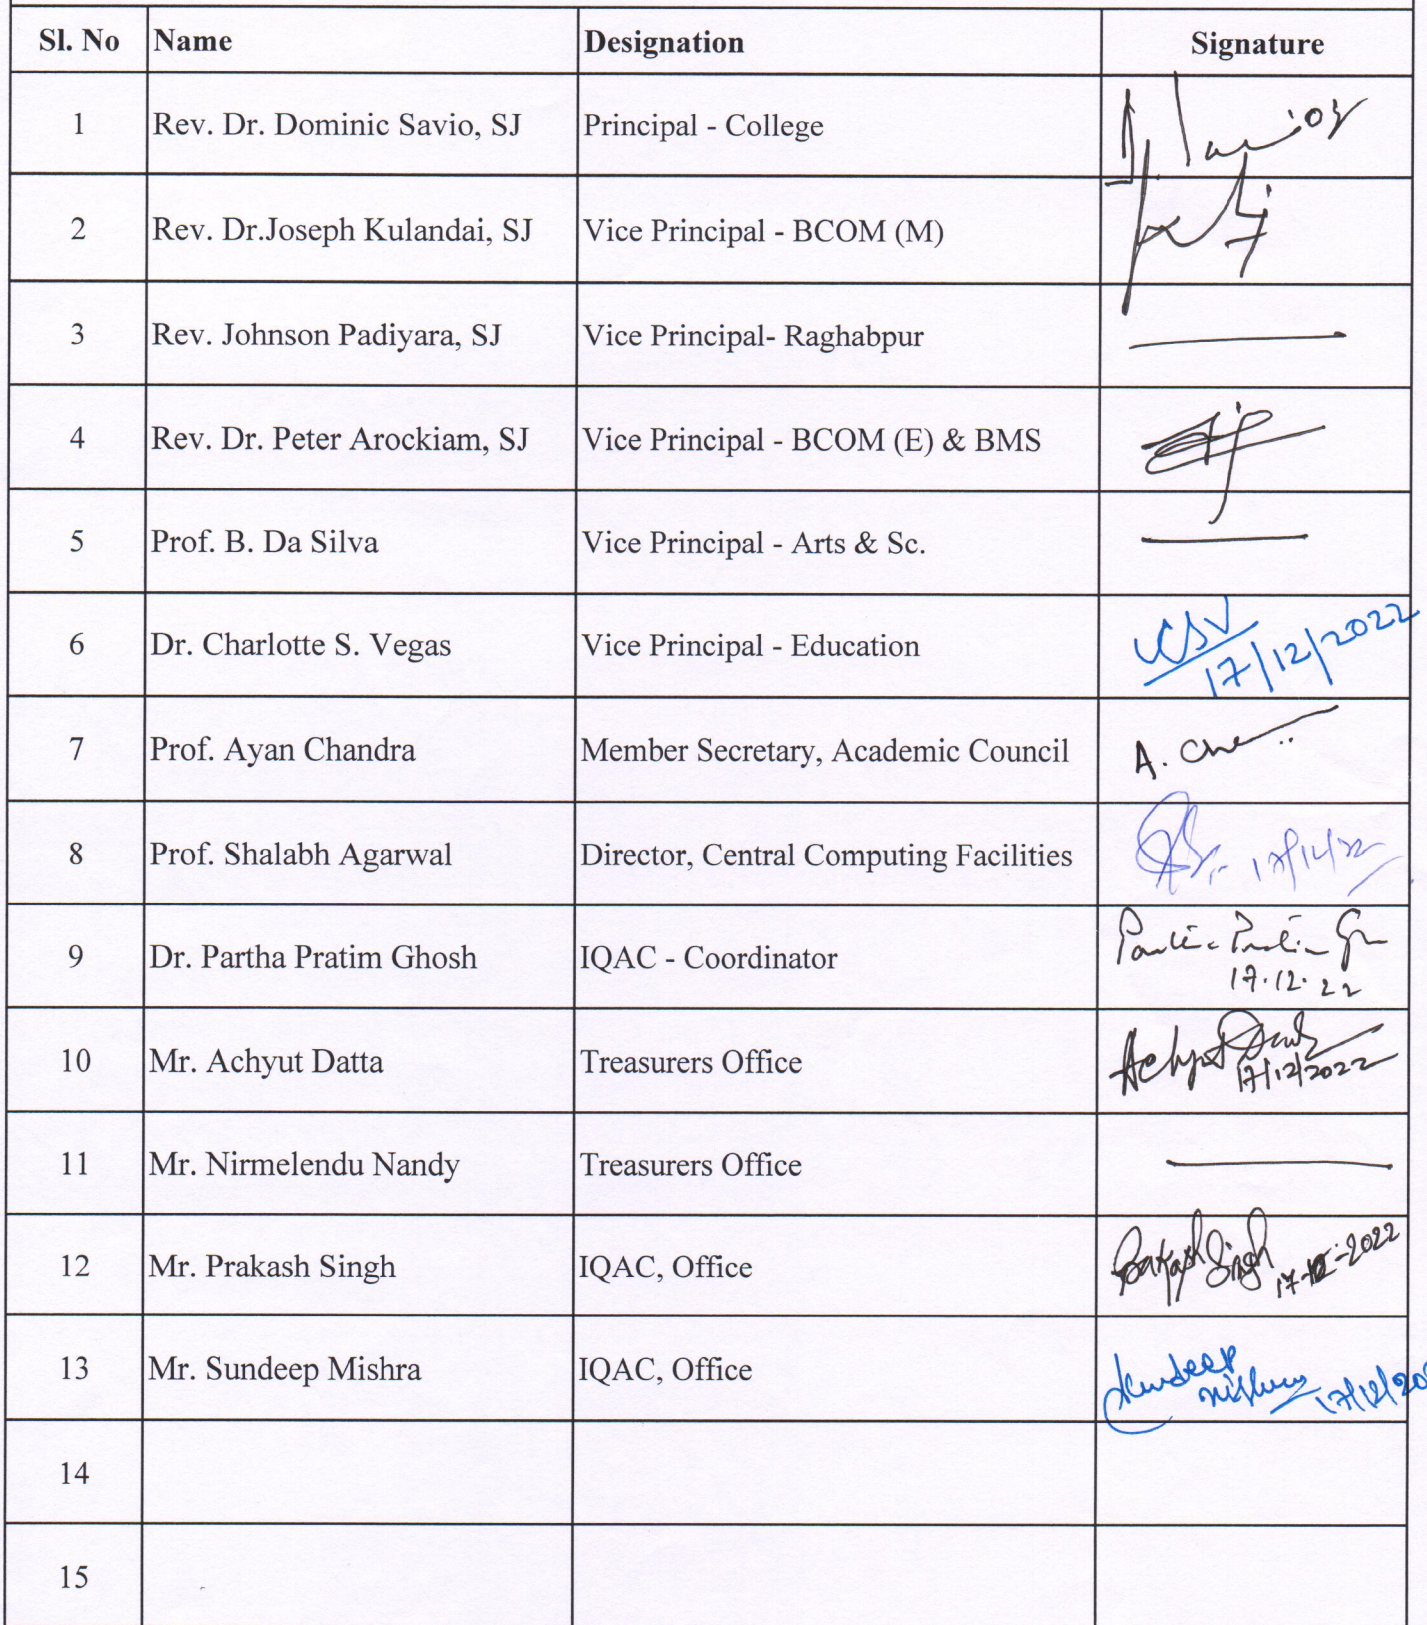 Sl. No Name Designation Signature
1 Rev. Dr. Dominic Savio, SJ Principal - College
2 Rev. Dr.Joseph Kulandai, SJ Vice Principal - BCOM (M)
3 Rev. Johnson Padiyara, SJ Vice Principal- Raghabpur
4 Rev. Dr. Peter Arockiam, SJ Vice Principal - BCOM (E) & BMS
5 Prof. B. Da Silva Vice Principal - Arts & Sc.
6 Dr. Charlotte S. Vegas Vice Principal - Education CSV
17/12/2022
7 Prof. Ayan Chandra Member Secretary, Academic Council A.
8 Prof. Shalabh Agarwal Director, Central Computing Facilities
9 Dr. Partha Pratim Ghosh IQAC - Coordinator
17.12.22
10 Mr. Achyut Datta Treasurers Office Achyut Datta
17/12/2022
11 Mr. Nirmelendu Nandy Treasurers Office
12 Mr. Prakash Singh IQAC, Office Prakash Singh 17-12-2022
13 Mr. Sundeep Mishra IQAC, Office Sundeep
Mishra
14
15